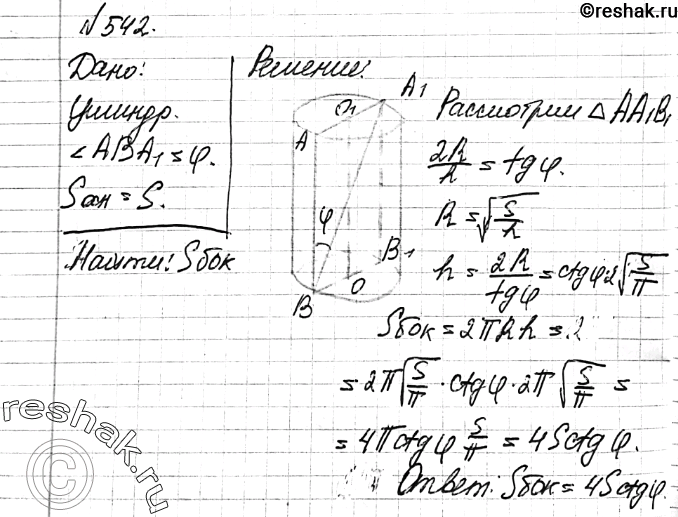 ©reshak.ru
N 542.
Дано:
Цилиндр.
∠ABA₁ = φ.
Sосн = S.
Найти: Sбок
Решение:
A₁
O₁
A
φ
B₁
O
B
Рассмотрим △ AA₁B₁
2R/h = tgφ.
R = √(S/h)
h = 2R/tgφ = ctgφ2√(S/π)
Sбок = 2πRh = 2
= 2π√(S/π) · ctgφ · 2π √(S/π) =
= 4πctgφ S/π = 4Sctgφ.
Ответ: Sбок = 4Sctgφ
reshak.ru
©